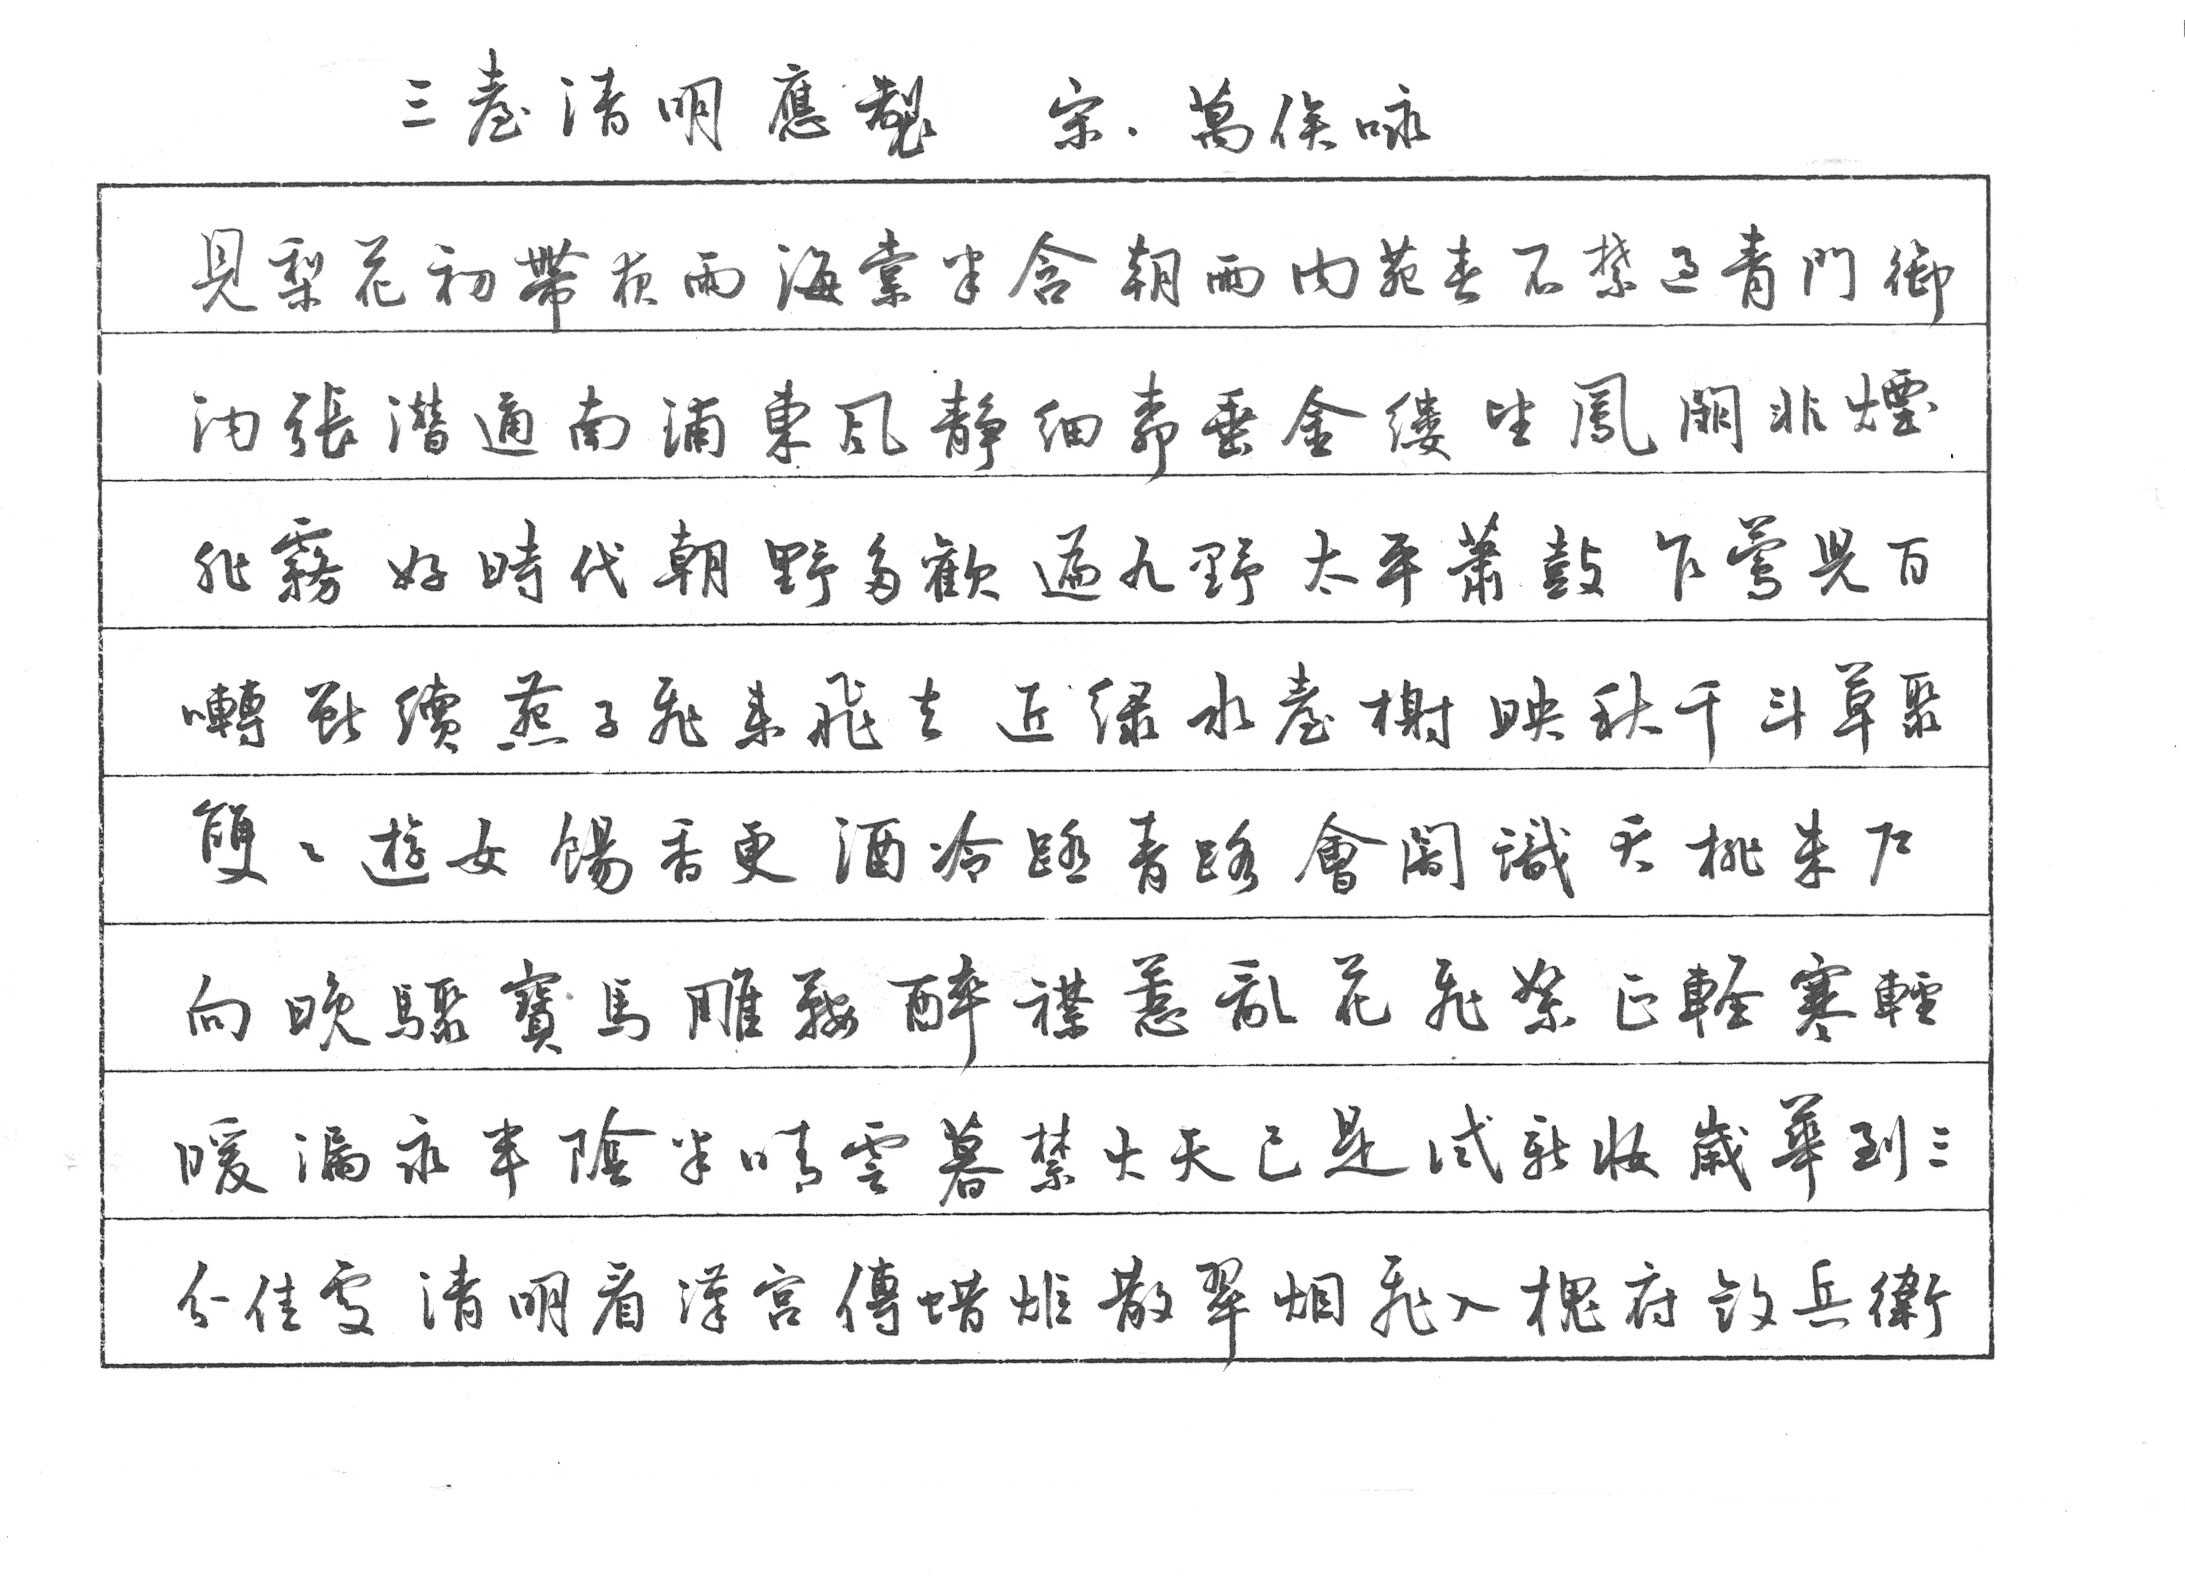 三臺清明應製 宋·萬俟咏
見梨花初帶夜雨海棠半含朝雨内苑春不禁過青門御
沟張潜通南浦東风静细柳垂金缕望鳳闕非煙
非霧好時代朝野多歡遍九野太平蕭鼓乍莺兒百
囀斷續燕子飛來飛去近绿水臺榭映秋千斗草聚
雙々遊女餳香更酒冷踏青路會闇識夭桃朱户
向晚驟寶馬雕鞍醉襟惹乱花飛絮正輕寒輕
暖漏永半陰半晴雲暮禁火天已是试新妝歲華到三
分佳處清明看漢宮傳蜡炬散翠烟飛入槐府斂兵衛